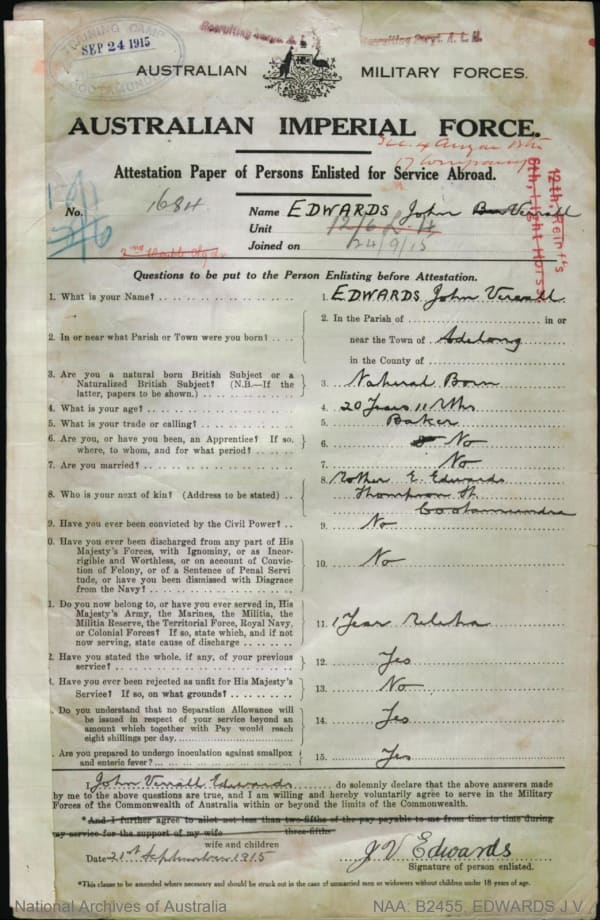 TRAINING CAMP
SEP 24 1915
COOTAMUNDRA
Recruiting Sergt. A. L. H.
Recruiting Sergt. A. L. H.
AUSTRALIAN MILITARY FORCES.
AUSTRALIAN IMPERIAL FORCE.
Attestation Paper of Persons Enlisted for Service Abroad.
12th. Reint's
6th. Light Horse
No. 1684
Name EDWARDS John Verrall
Unit 12/6 L. H.
Joined on 24/9/15
Questions to be put to the Person Enlisting before Attestation.
1. What is your Name? 1. EDWARDS John Verrall
2. In or near what Parish or Town were you born? 2. In the Parish of in or
near the Town of Adelong
in the County of
3. Are you a natural born British Subject or a
Naturalized British Subject? (N.B.—If the
latter, papers to be shown.) 3. Natural Born
4. What is your age? 4. 20 Years 11 Mths
5. What is your trade or calling? 5. Baker
6. Are you, or have you been, an Apprentice? If so,
where, to whom, and for what period? 6. No
7. Are you married? 7. No
8. Who is your next of kin? (Address to be stated) 8. Mother E. Edwards
Thompson St
Cootamundra
9. Have you ever been convicted by the Civil Power? 9. No
0. Have you ever been discharged from any part of His
Majesty's Forces, with Ignominy, or as Incor-
rigible and Worthless, or on account of Convic-
tion of Felony, or of a Sentence of Penal Servi
tude, or have you been dismissed with Disgrace
from the Navy? 10. No
1. Do you now belong to, or have you ever served in, His
Majesty's Army, the Marines, the Militia, the
Militia Reserve, the Territorial Force, Royal Navy,
or Colonial Forces? If so, state which, and if not
now serving, state cause of discharge 11. 1 Year
2. Have you stated the whole, if any, of your previous
service? 12. Yes
Have you ever been rejected as unfit for His Majesty's
Service? If so, on what grounds? 13. No
Do you understand that no Separation Allowance will
be issued in respect of your service beyond an
amount which together with Pay would reach
eight shillings per day 14. Yes
Are you prepared to undergo inoculation against smallpox
and enteric fever? 15. Yes
I, John Verrall Edwards do solemnly declare that the above answers made
by me to the above questions are true, and I am willing and hereby voluntarily agree to serve in the Military
Forces of the Commonwealth of Australia within or beyond the limits of the Commonwealth.
*And I further agree to allot not less than two-fifths of the pay payable to me from time to time during
my service for the support of my wife three-fifths
wife and children
Date 21st September 1915
J V Edwards
Signature of person enlisted.
*This clause to be amended where necessary and should be struck out in the case of unmarried men or widowers without children under 18 years of age.
National Archives of Australia
NAA: B2455, EDWARDS J V